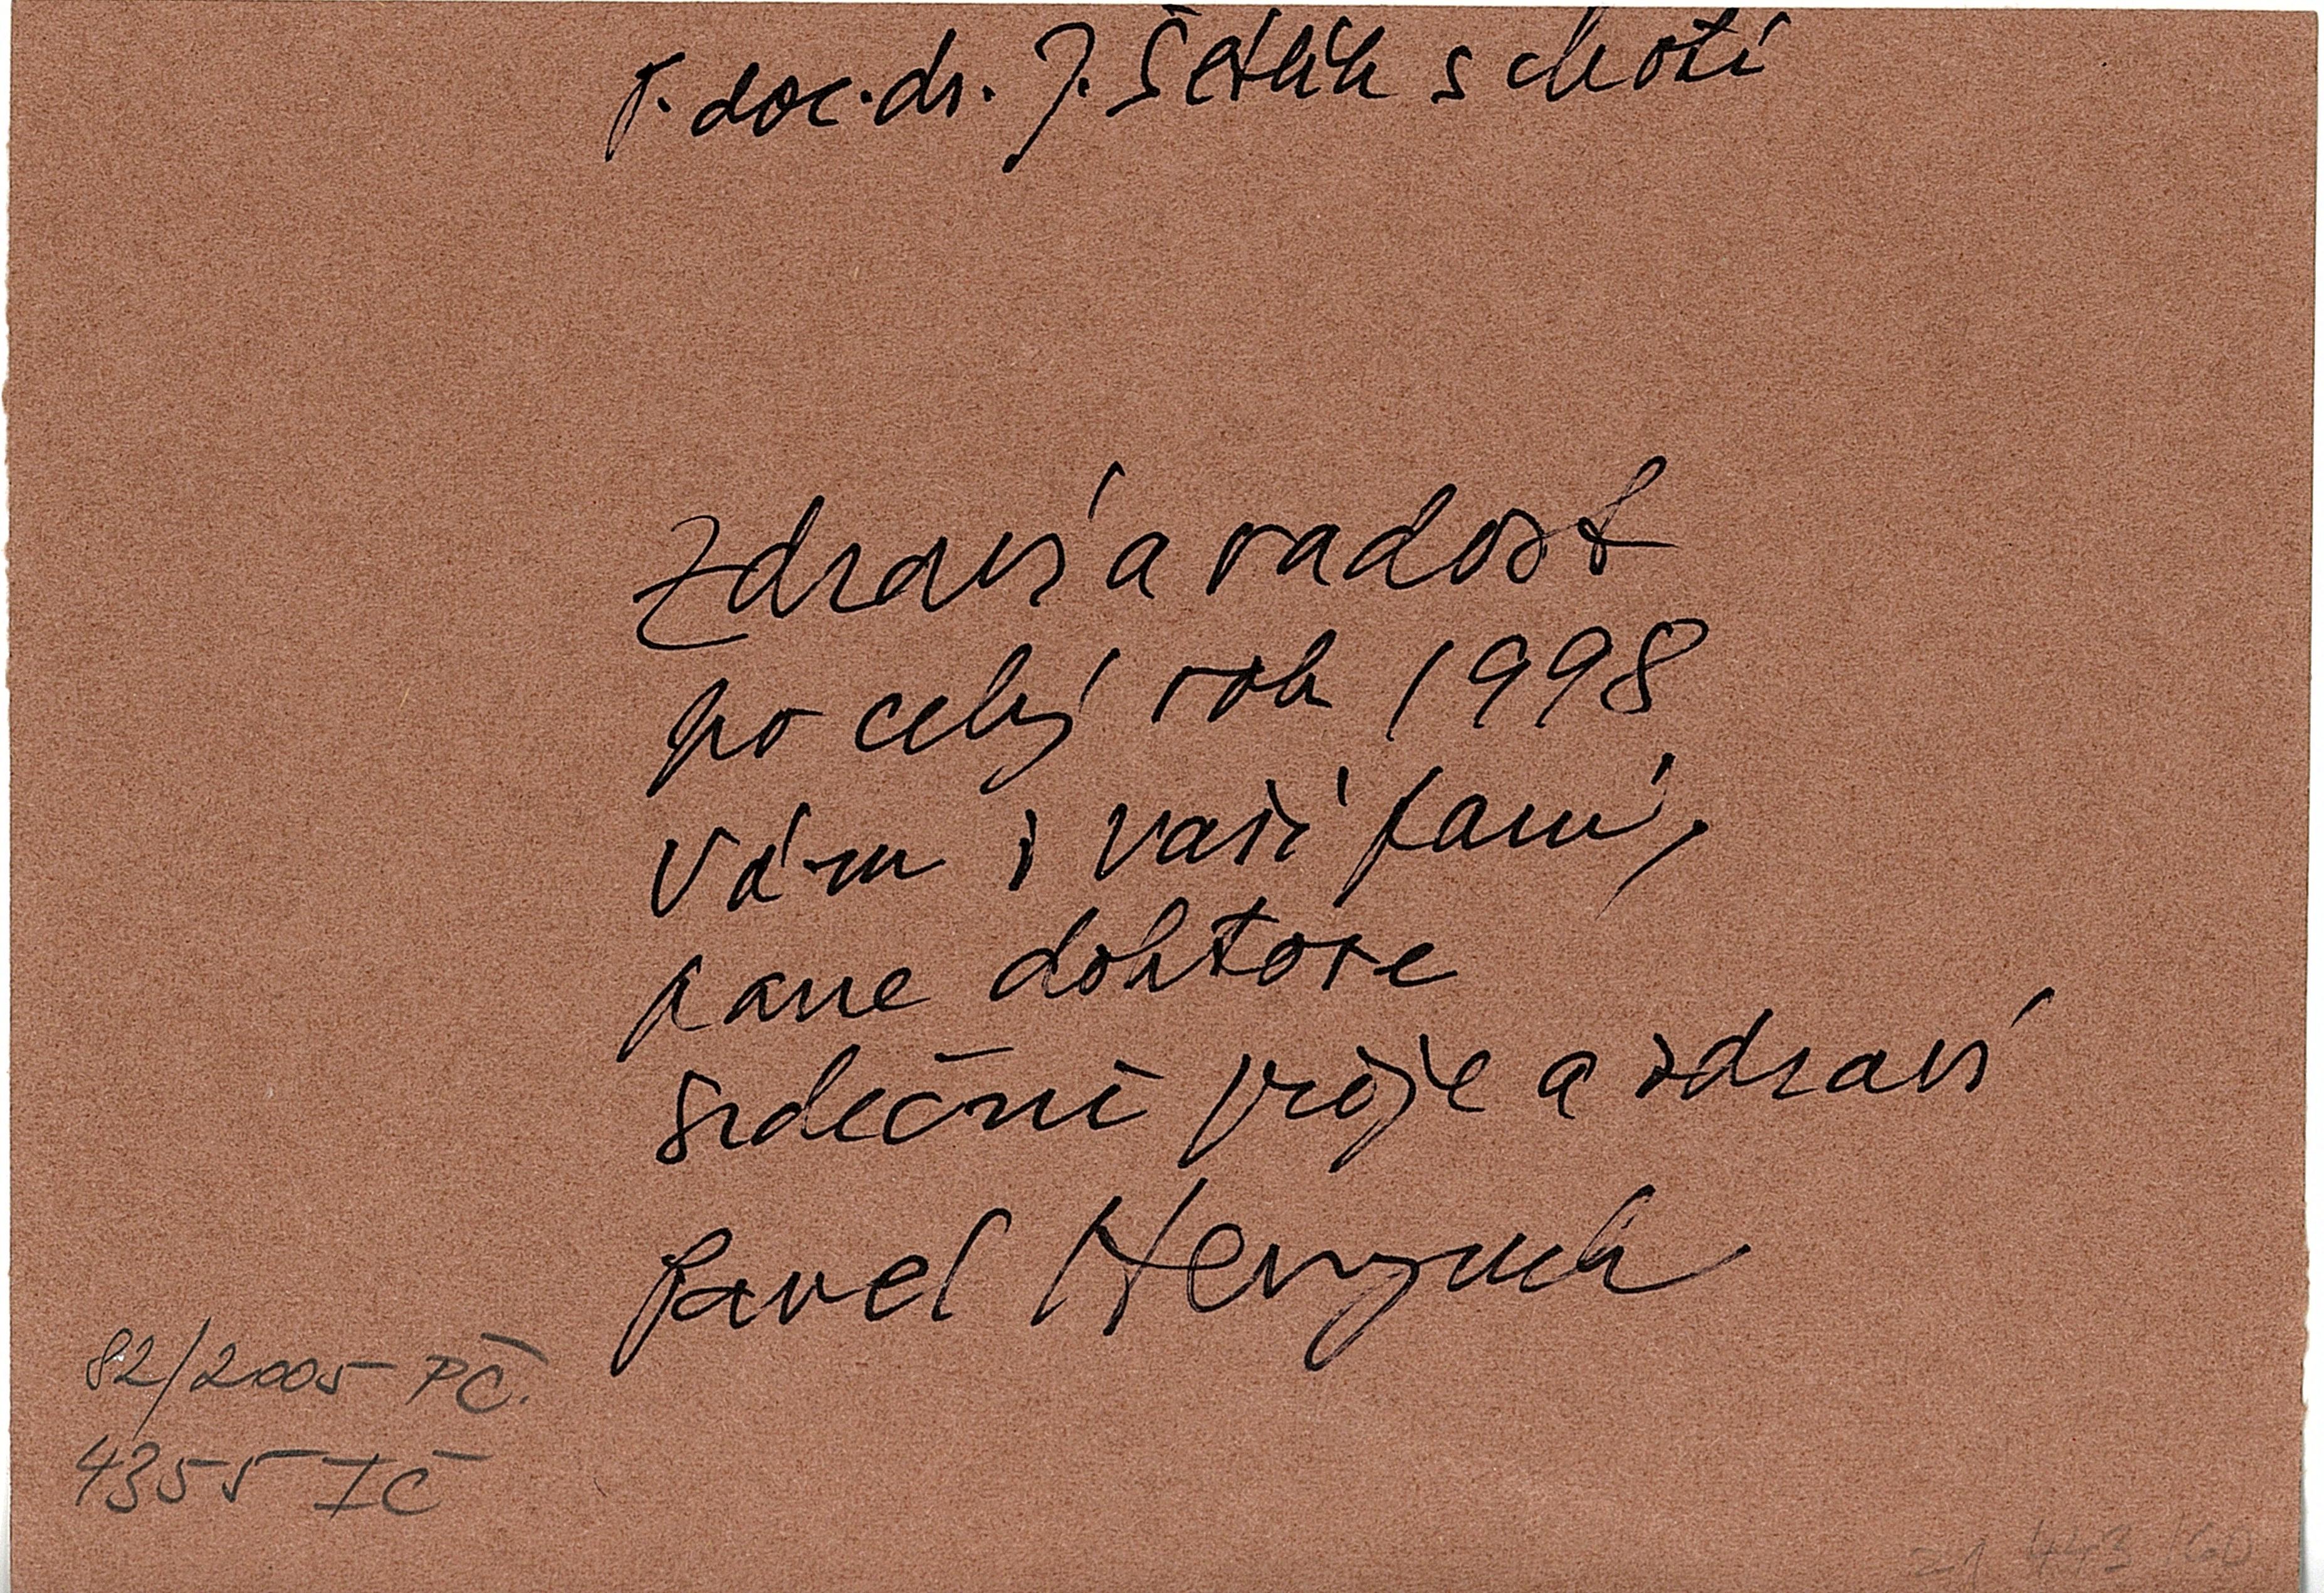 P. doc. dr. J. Šetlík s chotí
Zdraví a radost
po celý rok 1998
Vám i vaší paní,
pane doktore
srdečně přeje a zdraví
Pavel
82/2005 PČ.
4355 IČ